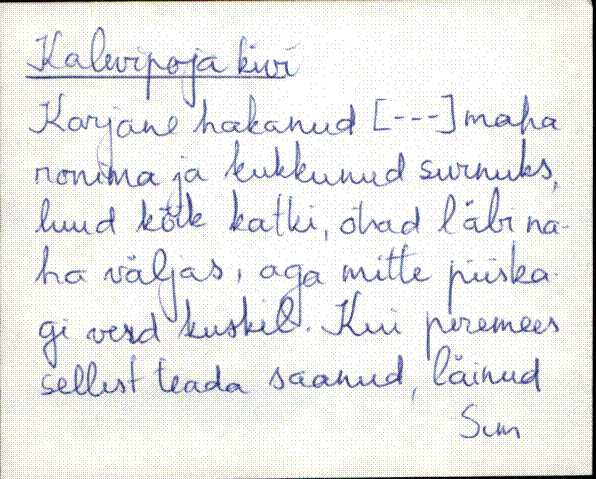 Kalevipoja kivi
Karjane hakanud [---] maha
ronima ja kukkunud surnuks,
luud kõik katki, otsad läbi na-
ha väljas, aga mitte piiska-
gi verd kuskil. Kui peremees
sellest teada saanud, läinud